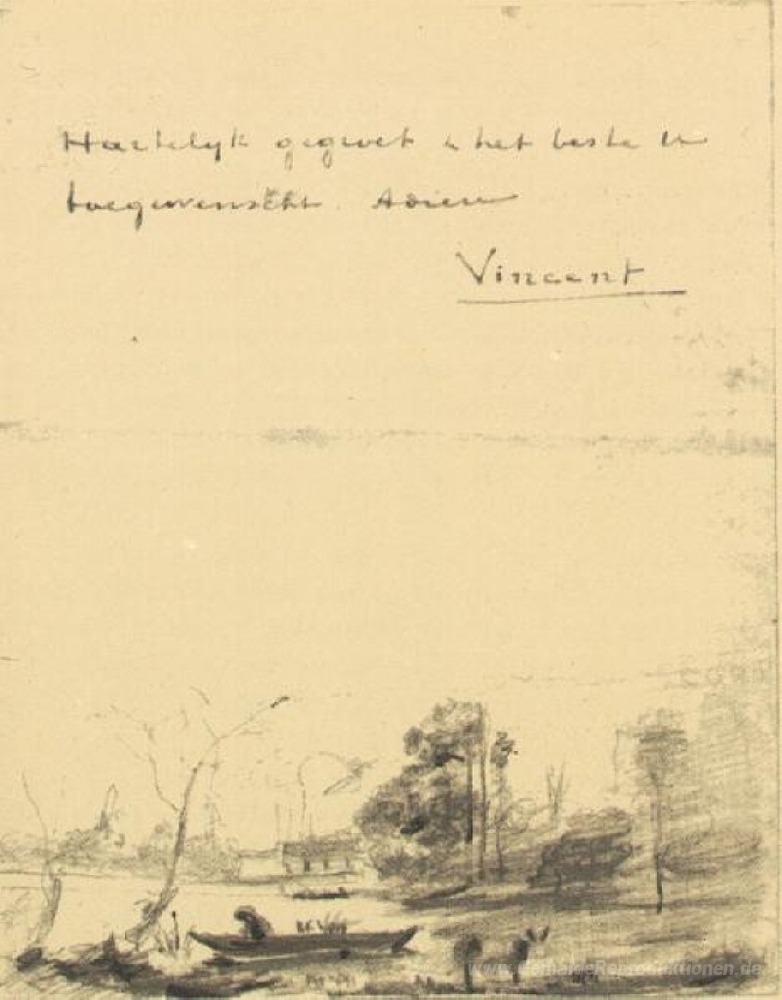 Hartelyk gegroet & het beste U
toegewenscht. Adieu
Vincent
www.GemaeldeReproduktionen.de